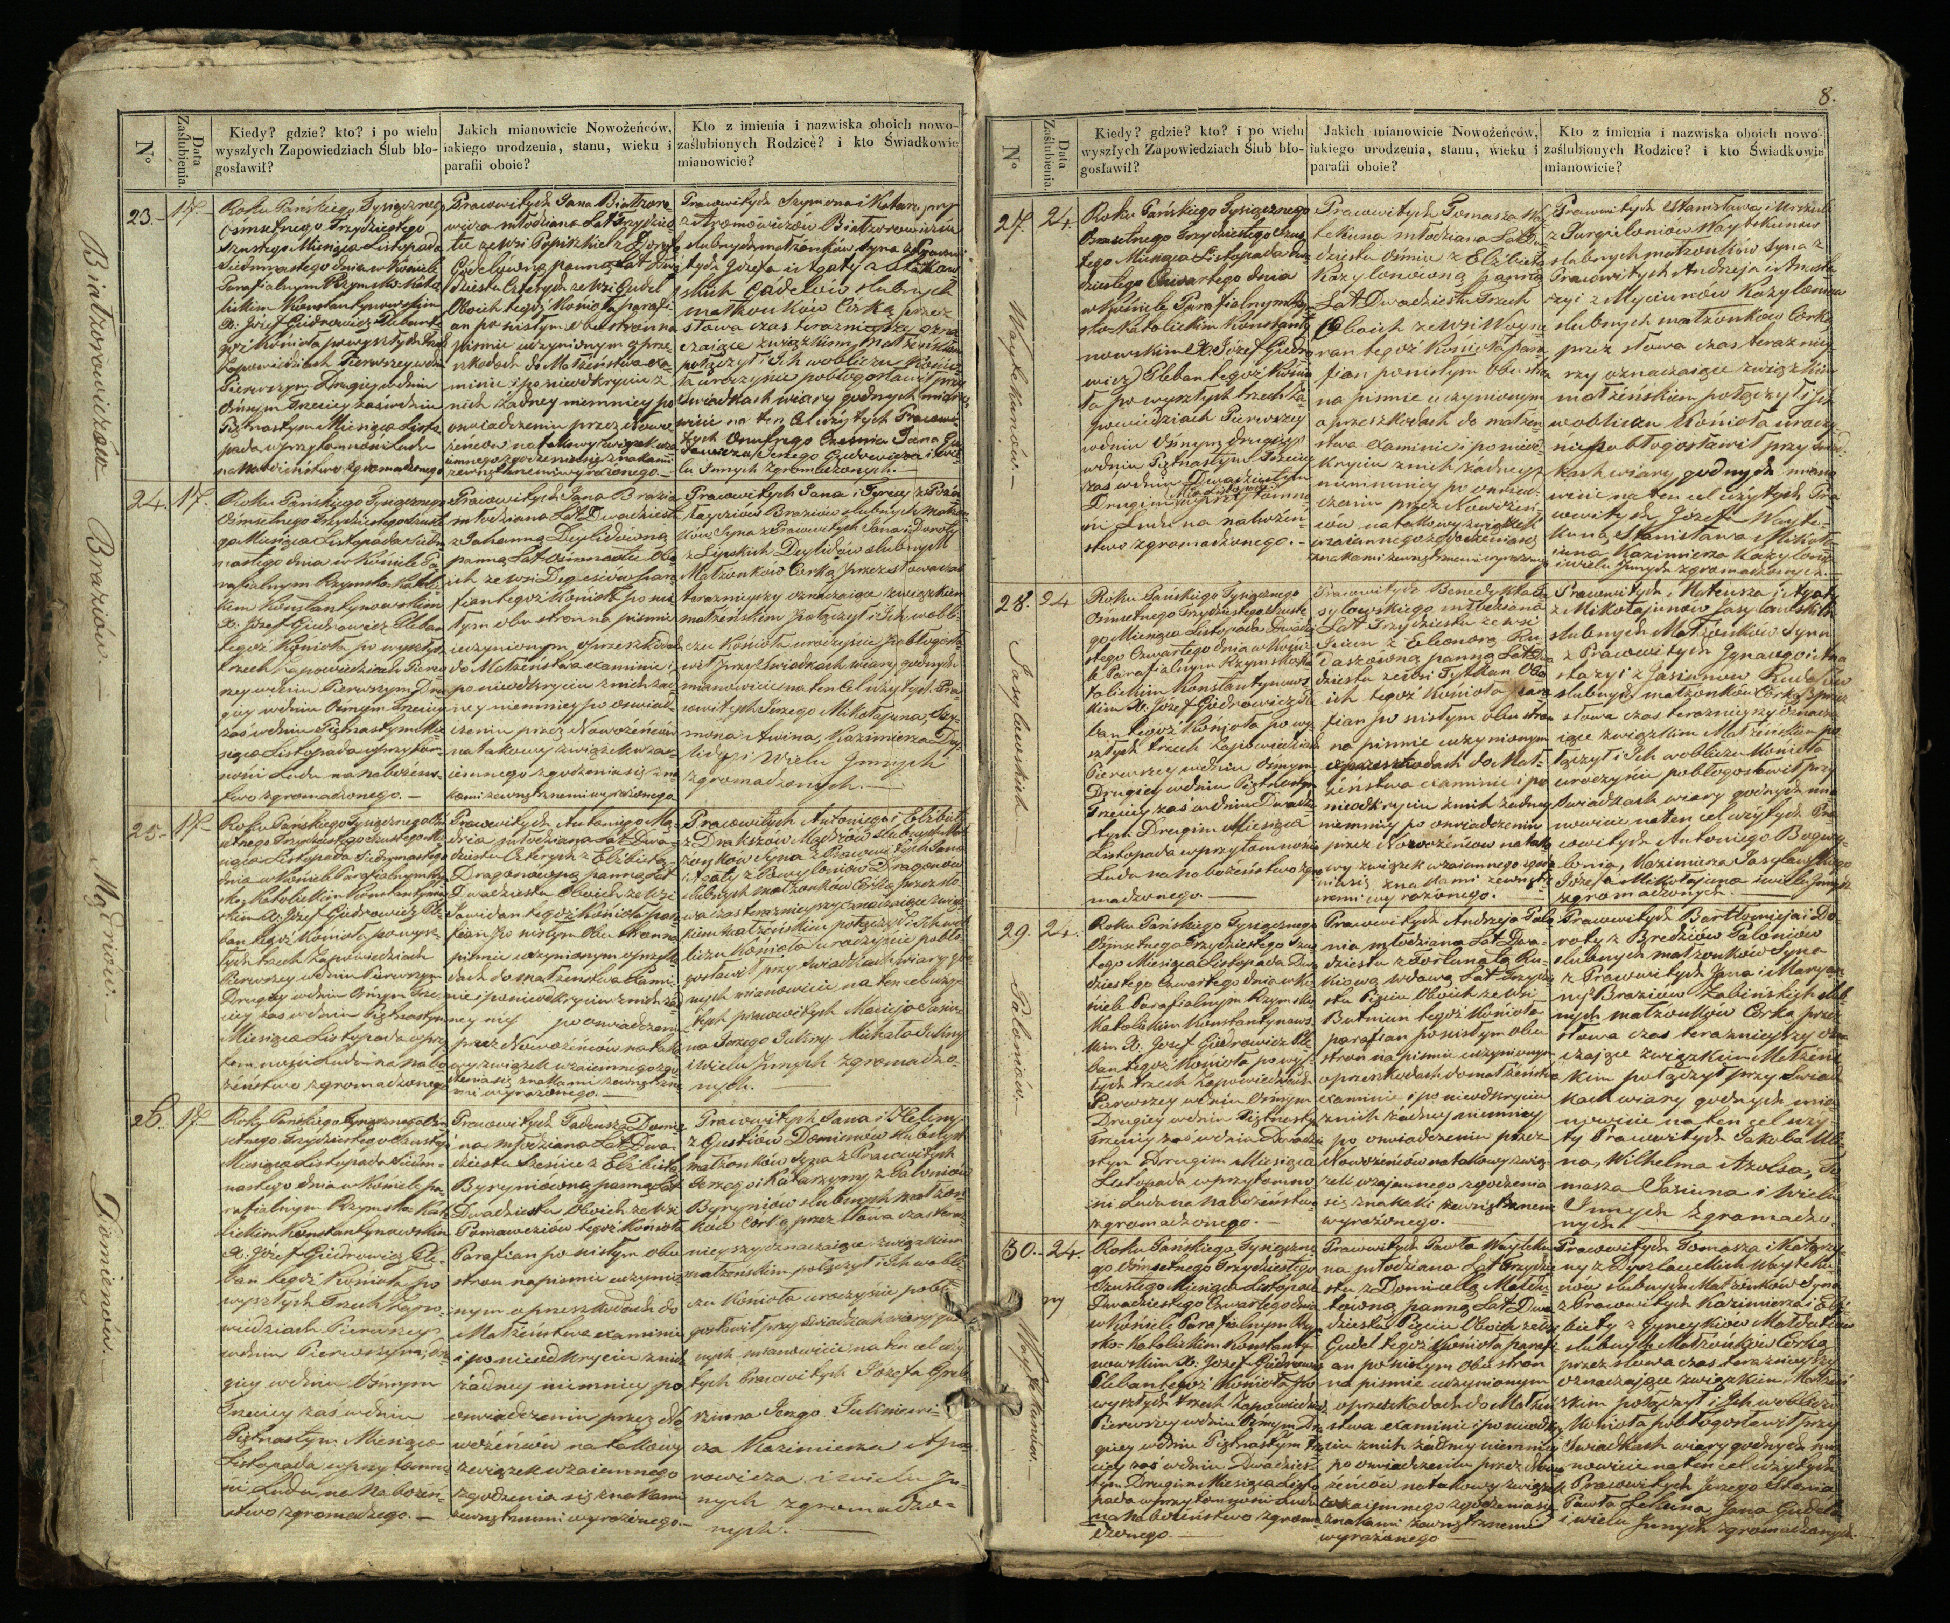 8.
N°
Data Zaślubienia.
Kiedy? gdzie? kto? i po wielu
wyszłych Zapowiedziach Ślub bło-
gosławił?
Jakich mianowicie Nowożeńców,
iakiego urodzenia, stanu, wieku i
parafii oboie?
Kto z imienia i nazwiska oboich nowo-
zaślubionych Rodzice? i kto Świadkowie
mianowicie?
Białzorowiczów
23. 17.
Roku Pańskiego Tysiącznego
Osmsetnego Trzydziestego
Szustego Miesiąca Listopada
Siedmnastego dnia w Kościele
Parafialnym Rzymsko-Kato-
lickim Konstantynowskim
X. Józef Giedrowicz Pleban
tegoż Kościoła po wyszłych trzech
Zapowiedziach Pierwszey w dniu
Pierwszym Drugiey w dniu
Osmym Trzeciey zaś w dniu
Piętnastym Miesiąca Listo-
pada w przytomności Ludu
na nabożeństwo zgromadzonego
Pracowitych Jana Białzoro
wicza młodziana Lat trzydzieś
tu ze wsi
Gudelówną panną Lat dwa
dziestu Czterech ze wsi Gudel
Oboich tegoż Kościoła parafi-
an po ścisłym obu stron na
piśmie uczynionym o prze
szkodach do Małżeństwa exa
minie i po nieodkryciu z
nich żadney niemniey po
oświadczeniu przez Nowo-
żeńców na takowy związek wza
iemnego zgodzenia się znakami
zewnętrznemi wyrażonego
Pracowitych Szymona i Katarzyny
Białzorowiczów
ślubnych małżonków Syna z Pracowi
tych Józefa i Agaty
Gudelów ślubnych
małżonków Córką przez
słowa czas teraznieyszy ozna
czaiące związkiem małżeńskim
połączył i Ich w obliczu Kościo
ła uroczyście pobłogosławił przy
Świadkach wiary godnych miano
wicie na ten cel użytych Pracowi-
tych Onufrego Jana
Jerzego Giedrowicza i wie-
lu Innych zgromadzonych.
Braziów
24. 17.
Roku Pańskiego Tysiącznego
Osmsetnego Trzydziestego Szuste
go Miesiąca Listopada Siedm
nastego dnia w Kościele Pa
rafialnym Rzymsko Katol-
ickim Konstantynowskim
X. Józef Giedrowicz Pleban
tegoż Kościoła po wyszłych
trzech Zapowiedziach Pierw
szey w dniu Pierwszym Dru
giey w dniu Osmym Trzeciey
zaś w dniu Piętnastym Mie
siąca Listopada w przytom
ności Ludu na nabożeńs-
two zgromadzonego.
Pracowitych Jana Brazia
młodziana Lat Dwadziestu
z Johanną Deylidówną
panną Lat osimnastu obo
ich ze wsi para
fian tegoż Kościoła po ścis
łym obu stron na piśmie
uczynionym o przeszkodach
do Małżeństwa examinie i
po nieodkryciu z nich żad
ney niemniey po oświad
czeniu przez Nowożeńców
na takowy związek wza
iemnego zgodzenia się zna
kami zewnętrznemi wyrażonego
Pracowitych Jana i
Braziów ślubnych małżon
ków Syna z Pracowitych Jana i Doroty
z Lipskich Deylidów ślubnych
Małżonków Córką przez słowa czas
teraznieyszy oznaczaiące związkiem
małżeńskim połączył i Ich w obli-
czu Kościoła uroczyście pobłogosła
wił przy Świadkach wiary godnych
mianowicie na ten cel użytych Pra
cowitych Jerzego Mikołajuna, Szy
mona Kazimierza Dey
lidy i Wielu Innych
zgromadzonych.
Mądriów.
25. 17.
Roku Pańskiego Tysiącznego Osm
setnego Trzydziestego Szustego Mie
siąca Listopada Siedmnastego
dnia w Kościele Parafialnym Rzym
sko Katolickim Konstantynow
skim X. Józef Giedrowicz Ple
ban tegoż Kościoła po wysz
łych trzech Zapowiedziach
Pierwszey w dniu Pierwszym
Drugiey w dniu Osmym Trze
ciey zaś w dniu Piętnastym
Miesiąca Listopada w przy
tomności Ludu na nabo
żeństwo zgromadzonego
Pracowitych Antoniego Mą
dria młodziana Lat Dwa
dziestu Czterych z Elżbietą
Draganówną panną Lat
Dwadziestu Oboich ze wsi
tegoż Kościoła para
fian po ścisłym Obu stron na
piśmie uczynionym o przesz
kodach do małżeństwa Exami
nie i po nieodkryciu z nich żad
ney po oświadczeniu
przez Nowożeńców na tako
wy związek wzaiemnego zgo
dzenia się znakami zewnętrzne
mi wyrażonego.
Pracowitych Antoniego i Elżbiety
z Drakszów Mądriów ślubnych Mał
żonków Syna z Pracowitych Jana
i Agaty z Draganów
ślubnych małżonków Córką przez sło
wa czas teraznieyszy oznaczaiące związ
kiem małżeńskim połączył i Ich w ob
liczu Kościoła uroczyście pobło
gosławił przy Świadkach wiary go
nych mianowicie na ten cel uży
tych pracowitych Macieja
Jerzego Michała
i wielu Innych zgromadzo-
nych.
Domienów.
26. 17.
Roku Pańskiego Tysiącznego Osm
setnego Trzydziestego Szustego
Miesiąca Listopada Siedm-
nastego dnia w Kościele pa-
rafialnym Rzymsko Kato
lickim Konstantynowskim
X. Józef Giedrowicz Ple-
ban tegoż Kościoła po
wyszłych Trzech Zapo-
wiedziach Pierwszey
w dniu Pierwszym, Dru
giey w dniu Osmym
Trzeciey zaś w dniu
Piętnastym Miesiąca
Listopada w przytomno
ści Ludu na nabożeń-
stwo zgromadzonego.
Pracowitych Tadeusza Domie
na młodziana Lat Dwa-
dziestu Sześciu z Elżbietą
Byryniówną panną Lat
Dwadziestu Oboich ze wsi
tegoż Kościoła
Parafian po ścisłym obu
stron na piśmie uczynio
nym o przeszkodach do
Małżeństwa examinie
i po nieodkryciu z nich
żadney niemniey po
oświadczeniu przez No
wożeńców na takowy
związek wzaiemnego
zgodzenia się znakami
zewnętrznemi wyrażonego.
Pracowitych Jana i Heleny
z Domienów ślubnych
małżonków Syna z Pracowitych
Jerzego i Katarzyny z Paloniów
Byryniów ślubnych małżon-
ków Córką przez słowa czas teraź
nieyszy oznaczaiące związkiem
małżeńskim połączył i Ich w obli
czu Kościoła uroczyście pobło
gosławił przy Świadkach wiary god
nych mianowicie na ten cel uży
tych Pracowitych Józefa
Jerzego
Kazimierza
i wielu In
nych zgromadzo-
nych.
N°
Data Zaślubienia.
Kiedy? gdzie? kto? i po wielu
wyszłych Zapowiedziach Ślub bło-
gosławił?
Jakich mianowicie Nowożeńców,
iakiego urodzenia, stanu, wieku i
parafii oboie?
Kto z imienia i nazwiska oboich nowo-
zaślubionych Rodzice? i kto Świadkowie
mianowicie?
Woytekunów.
27. 24.
Roku Pańskiego Tysiącznego
Osmsetnego Trzydziestego Szus
tego Miesiąca Listopada Dwu
dziestego Czwartego dnia
w Kościele Parafialnym Rzym
sko-Katolickim Konstanty
nowskim X. Józef Giedro
wicz Pleban tegoż Kościo
ła po wyszłych trzech Za
powiedziach Pierwszey
w dniu Osmym drugiey
w dniu Piętnastym Trzeciey
zaś w dniu Dwudziestym
Drugim w przytomno
ści Ludu na nabożeń-
stwo zgromadzonego.
Pracowitych Tomasza Woy
tekuna młodziana Lat Dwa
dziestu Osmiu z Elżbietą
Kazylonówną panną
Lat Dwadziestu Trzech
Oboich ze wsi
tegoż Kościoła para
fian po ścisłym Obu stron
na piśmie uczynionym
o przeszkodach do małżeń
stwa Examinie i po nieod
kryciu z nich żadney
niemniey po oświad
czeniu przez Nowożeń
ców na takowy związek
wzaiemnego zgodzenia się
znakami zewnętrznemi wyrażonego
Pracowitych Stanisława i Urszuli
z Woytekunów
ślubnych małżonków Syna z
Pracowitych Andrzeja i Anasta
zyi z Kazylonów
ślubnych małżonków Córką
przez słowa czas teraźniey
szy oznaczaiące związkiem
małżeńskim połączył i Ich
w obliczu Kościoła uroczy
ście pobłogosławił przy Świad-
kach wiary godnych miano
wicie na ten cel użytych Pra
cowitych Józefa Woyte-
kuna, Stanisława
Kazimierza Kazylonia
i wielu Innych zgromadzonych.
Jasylewskich.
28. 24
Roku Pańskiego Tysiącznego
Osmsetnego Trzydziestego Szuste
go Miesiąca Listopada Dwudzie
stego Czwartego dnia w Kościo
le Parafialnym Rzymsko Ka
tolickim Konstantynows
kim X. Józef Giedrowicz Ple
ban tegoż Kościoła po wy
szłych trzech Zapowiedziach
Pierwszey w dniu Osmym
Drugiey w dniu Piętnastym
Trzeciey zaś w dniu Dwudzie
stym Drugim Miesiąca
Listopada w przytomności
Ludu na nabożeństwo zgro
madzonego.
Pracowitych Benedykta Ja
sylewskiego młodziana
Lat Trzydziestu ze wsi
z Eleonorą
panną Lat Dwa
dziestu ze wsi Obo
ich tegoż Kościoła para
fian po ścisłym obu stron
na piśmie uczynionym
o przeszkodach do Mał-
żeństwa Examinie i po
nieodkryciu z nich żadney
niemniey po oświadczeniu
przez Nowożeńców na tako
wy związek wzaiemnego zgo
dzenia się znakami zewnętrz
nemi wyrażonego.
Pracowitych Mateusza i Agaty
z Mikołajunów Jasylewskich
ślubnych Małżonków Syna
z Pracowitych Ignacego i Ana
stazyi z
ślubnych małżonków Córką przez
słowa czas teraznieyszy oznacza
iące związkiem Małżeńskim po
łączył i Ich w obliczu Kościoła
uroczyście pobłogosławił przy
Świadkach wiary godnych mia
nowicie na ten cel użytych Pra
cowitych Antoniego
Kazimierza Jasylewskiego
Józefa Mikołajuna i wielu Innych
zgromadzonych.
Paloniów.
29. 24.
Roku Pańskiego Tysiącznego
Osmsetnego Trzydziestego Szus
tego Miesiąca Listopada Dwu
dziestego Czwartego dnia w Ko
ściele Parafialnym Rzymsko
Katolickim Konstantynows
kim X. Józef Giedrowicz Ple
ban tegoż Kościoła po wysz
łych trzech Zapowiedziach
Pierwszey w dniu Osmym
Drugiey w dniu Piętnastym
Trzeciey zaś w dniu Dwudzie
stym Drugim Miesiąca
Listopada w przytomno
ści Ludu na nabożeństwo
zgromadzonego.
Pracowitych Andrzeja Palo
nia młodziana Lat Dwa-
dziestu z Fortunatą
wdową Lat Trzydzie
stu Pięciu Oboich ze wsi
tegoż Kościoła
parafian po ścisłym obu
stron na piśmie uczynionym
o przeszkodach do małżeństwa
examinie i po nieodkryciu
z nich żadney niemniey
po oświadczeniu przez
Nowożeńców na takowy związ-
zek wzaiemnego zgodzenia
się znakami zewnętrznemi
wyrażonego.
Pracowitych Bartłomieja i Do-
roty z Paloniów
ślubnych małżonków Syna
z Pracowitych Jana i Maryan
ny Braziów ślub
nych małżonków Córką przez
słowa czas teraznieyszy ozna
czaiące związkiem Małżeńs
kim połączył przy Świad
kach wiary godnych mia-
nowicie na ten cel uży-
tych Pracowitych Jakuba
Wilhelma To
masza i Wielu
Innych zgromadzo-
nych.
Woytekunów.
30. 24.
Roku Pańskiego Tysiączne
go Osmsetnego Trzydziestego
Szustego Miesiąca Listopada
Dwudziestego Czwartego dnia
w Kościele Parafialnym Rzym
sko-Katolickim Konstanty-
nowskim X. Józef Giedrowicz
Pleban tegoż Kościoła po
wyszłych trzech Zapowiedziach
Pierwszey w dniu Osmym Dru
giey w dniu Piętnastym Trze
ciey zaś w dniu Dwudzies-
tym Drugim Miesiąca Listo
pada w przytomności Ludu
na nabożeństwo zgroma
dzonego
Pracowitych Pawła Woyteku
na młodziana Lat Trzydzie
stu z Domicellą
panną Lat Dwa
dziestu Pięciu Oboich ze wsi
Gudel tegoż Kościoła parafi
an po ścisłym Obu stron
na piśmie uczynionym
o przeszkodach do Małżeń
stwa examinie i po nieodkry
ciu z nich żadney niemniey
po oświadczeniu przez Nowo
żeńców na takowy związek
wzaiemnego zgodzenia się
znakami zewnętrznemi
wyrażonego
Pracowitych Tomasza i Katarzy-
ny z Woyteku
nów ślubnych Małżonków Syna
z Pracowitych Kazimierza i Elż-
biety z
ślubnych Małżonków Córką
przez słowa czas teraznieyszy
oznaczaiące związkiem Małżeń
skim połączył i Ich w obliczu
Kościoła pobłogosławił przy
Świadkach wiary godnych mia
nowicie na ten cel użytych
Pracowitych Jerzego
Pawła Jana Gudela
i wielu Innych zgromadzonych